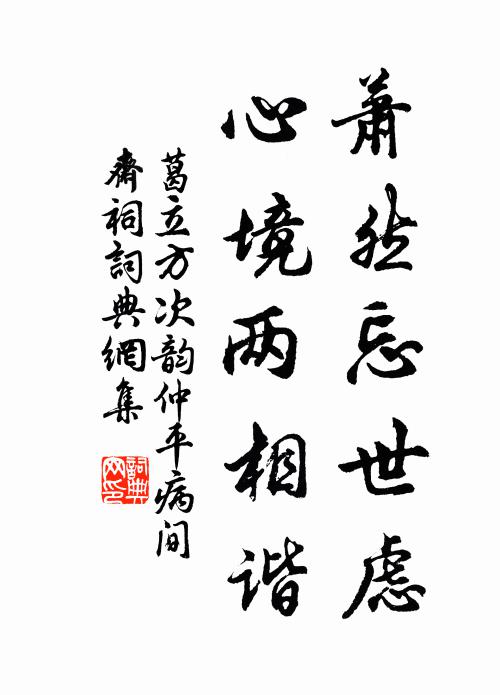 萧然忘世虑
心境两相谐
葛立方次韵仲平病间
斋祠詞典網集
詞典网印